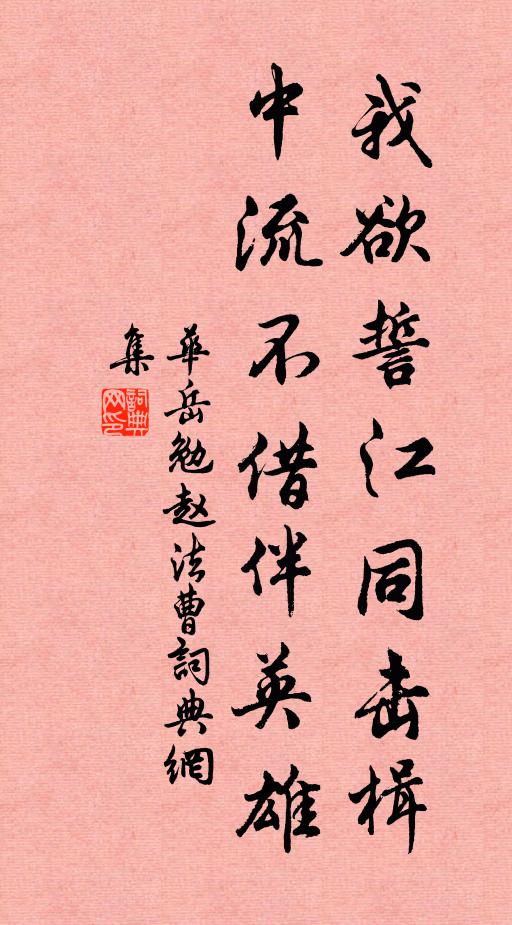 我欲誓江同击楫
中流不借伴英雄
華岳勉赵法曹詞典網
集
詞典网印